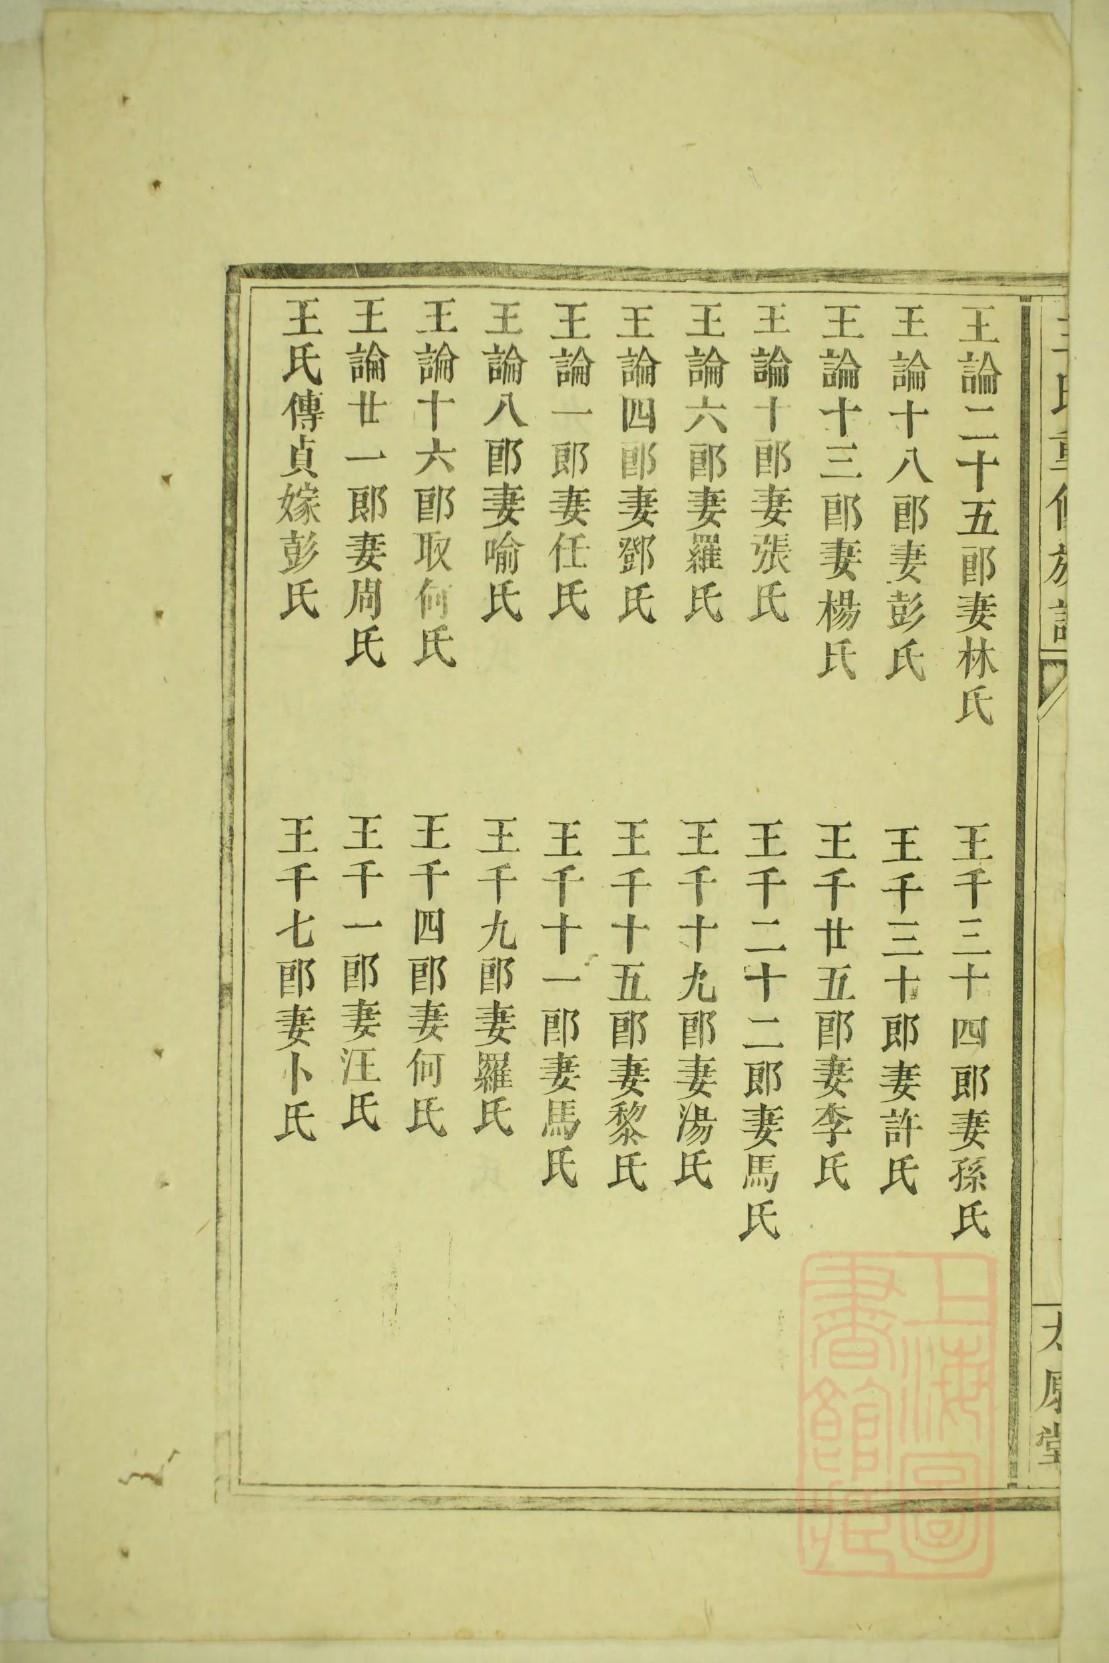 王氏重修族譜
太原堂
王論二十五郎妻林氏
王千三十四郎妻孫氏
王論十八郎妻彭氏
王千三十郎妻許氏
王論十三郎妻楊氏
王千廿五郎妻李氏
王論十郎妻張氏
王千二十二郎妻馬氏
王論六郎妻羅氏
王千十九郎妻湯氏
王論四郎妻鄧氏
王千十五郎妻黎氏
王論一郎妻任氏
王千十一郎妻馬氏
王論八郎妻喻氏
王千九郎妻羅氏
王論十六郎取何氏
王千四郎妻何氏
王論廿一郎妻周氏
王千一郎妻汪氏
王氏傳貞嫁彭氏
王千七郎妻卜氏
上海圖
書館藏